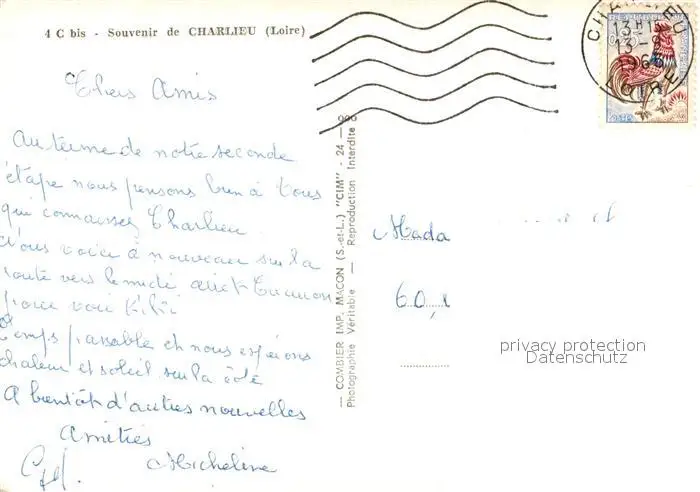 4 C bis - Souvenir de CHARLIEU (Loire)
CHARLIEU
13 H 15
13 - 8
LOIRE
POSTES
Chers Amis
Au terme de notre seconde
étape nous pensons bien à vous
qui connaissez Charlieu.
Nous voici à nouveau sur la
route vers le midi
pour voir Kiki
Temps passable et nous espérons
chaleur et soleil sur la côte
A bientôt d'autres nouvelles
Amitiés
Micheline
— COMBIER IMP. MACON (S.-et-L.) "CIM" - 24 - 000
Photographie Véritable — Reproduction Interdite
Mada
60,
privacy protection
Datenschutz